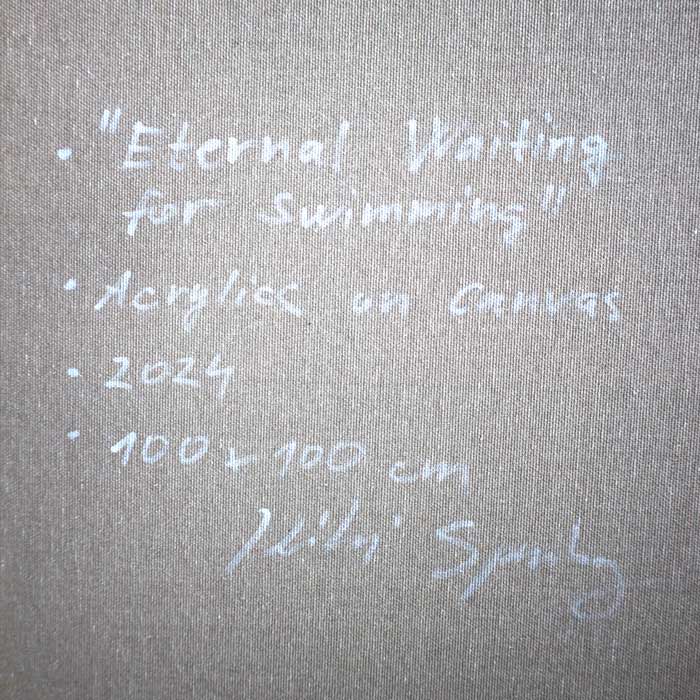 • "Eternal Waiting
for swimming"
• Acrylics on canvas
• 2024
• 100 x 100 cm